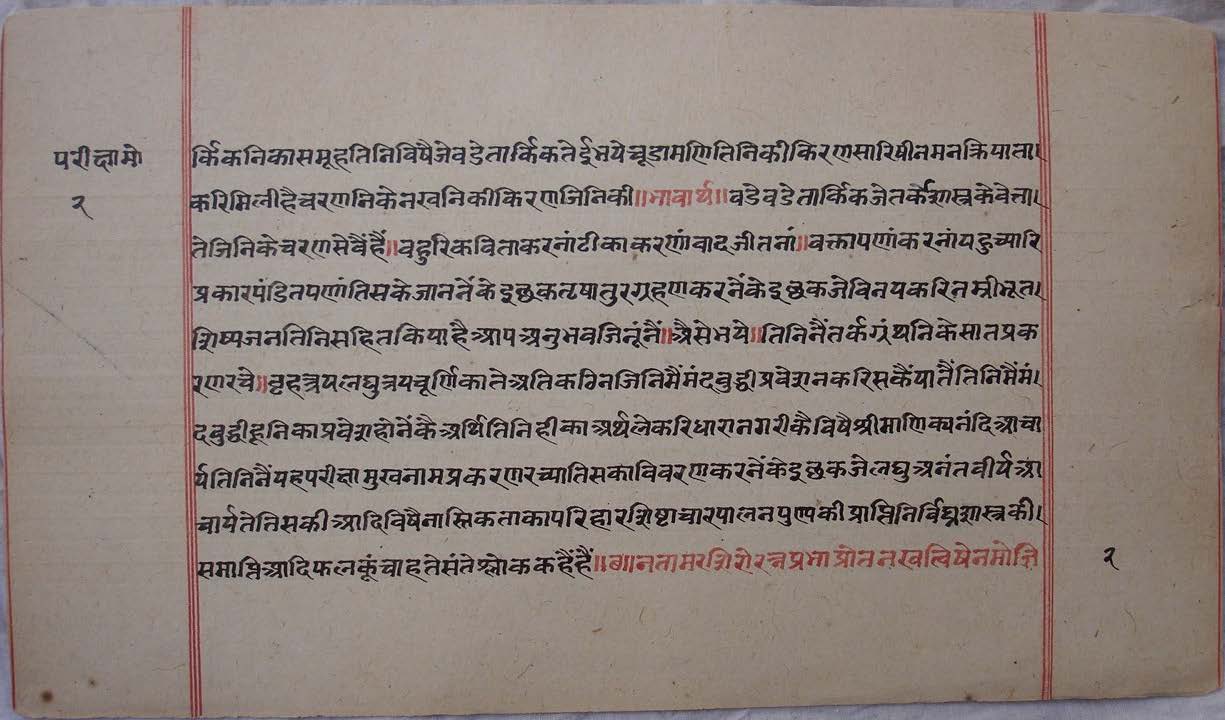 परीक्षामो
२
र्किकनिकासमूहतिनिविषैजेवडेतार्किकतेईभयेचूडामणितिनिकीकिरणसारिषीनमनक्रियाता।
करिमिलीहैचरणनिकेनखनिकीकिरणजिनिकी॥भावार्थ॥वडेवडेतार्किकजेतर्कशास्त्रकेवेत्ता।
तेजिनिकेचरणसेवैंहैं॥वहुरिकविताकरनांटीकाकरणांवादजीतनां॥वक्तापणांकरनांयहुच्यारि
प्रकारपंडितपणंतिसकेजाननेंकेइछुकतृषातुरग्रहणकरनेंकेइछुकजेविनयकरिनम्रीभूत।
शिष्यजनतिनिसहितकियाहैआपअनुभवजिनूंनैं॥अैसेभये॥तिनिनैंतर्कग्रंथनिकेसातप्रक
रणरचे॥वृहत्त्रयलघुत्रयचूर्णिकातेअतिकठिनजिनिमैंमंदबुद्धीप्रवेशनकरिसकैंयातैंतिनिमैंमं।
दबुद्धीहूनिकाप्रवेशहोनेंकैअर्थितिनिहीकाअर्थलेकरिधारानगरीकैविषैश्रीमाणिक्यनंदिआचा
र्यतिनिनैंयहपरीक्षामुखनामप्रकरणरच्यातिसकाविवरणकरनेंकेइछुकजेलघुअनंतवीर्यआ
चार्यतेतिसकीआदिविषैनास्तिकताकापरिहारशिष्टाचारपालनपुण्यकीप्राप्तिनिर्विघ्नशास्त्रकी।
समाप्तिआदिफलकूंचाहतेसंतेश्लोककहैंहैं॥छ॥नतामरशिरोरत्नप्रभाप्रोतनखत्विषेनमोजि
२